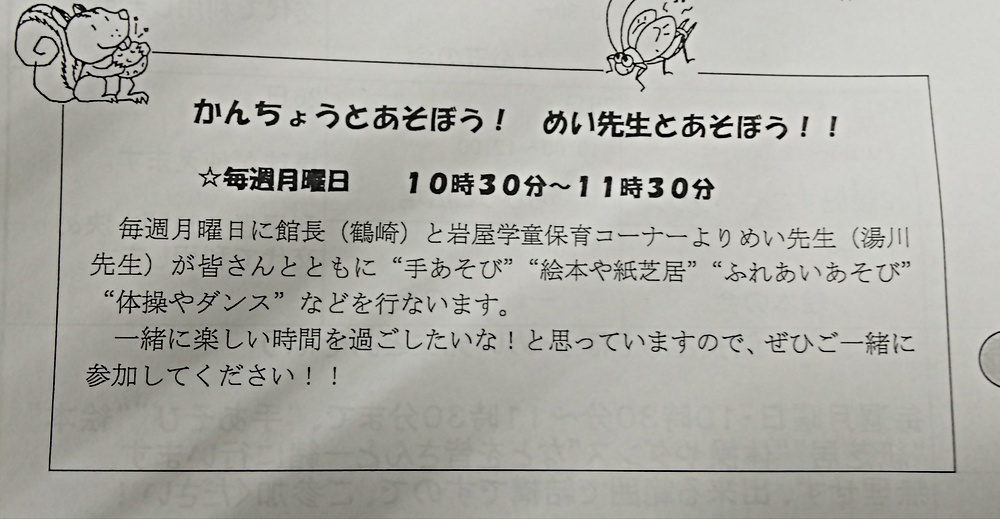 かんちょうとあそぼう！　めい先生とあそぼう！！
☆毎週月曜日　　１０時３０分～１１時３０分
毎週月曜日に館長（鶴崎）と岩屋学童保育コーナーよりめい先生（湯川
先生）が皆さんとともに“手あそび”“絵本や紙芝居”“ふれあいあそび”
“体操やダンス”などを行ないます。
一緒に楽しい時間を過ごしたいな！と思っていますので、ぜひご一緒に
参加してください！！